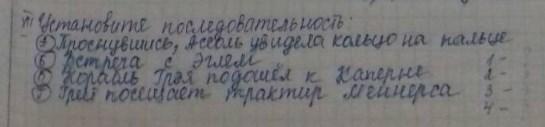 VII Установите последовательность:
а) Проснувшись, Ассоль увидела кольцо на пальце
б) Встреча с Эглем 1-
в) Корабль Грэя подошёл к Каперне 2-
г) Грей посещает трактир Меннерса 3-
4-